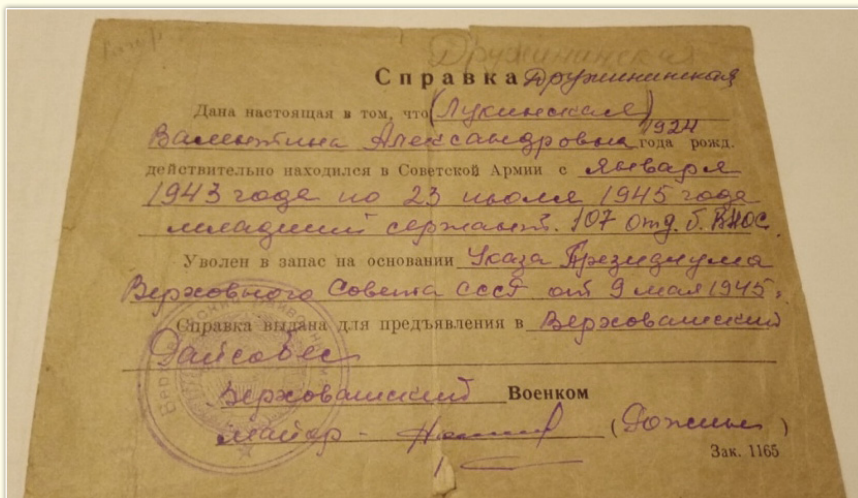 Дружининская
Справка Дружининская
Дана настоящая в том, что (Лукинская)
Валентина Александровна 1924 года рожд.
действительно находился в Советской Армии с января
1943 года по 23 июля 1945 года
младший сержант. 107 отд. б. ВНОС.
Уволен в запас на основании Указа Президиума
Верховного Совета СССР от 9 мая 1945.
Справка выдана для предъявления в Верховажский
Райсобес
Верховажский Военком
майор -
Зак. 1165